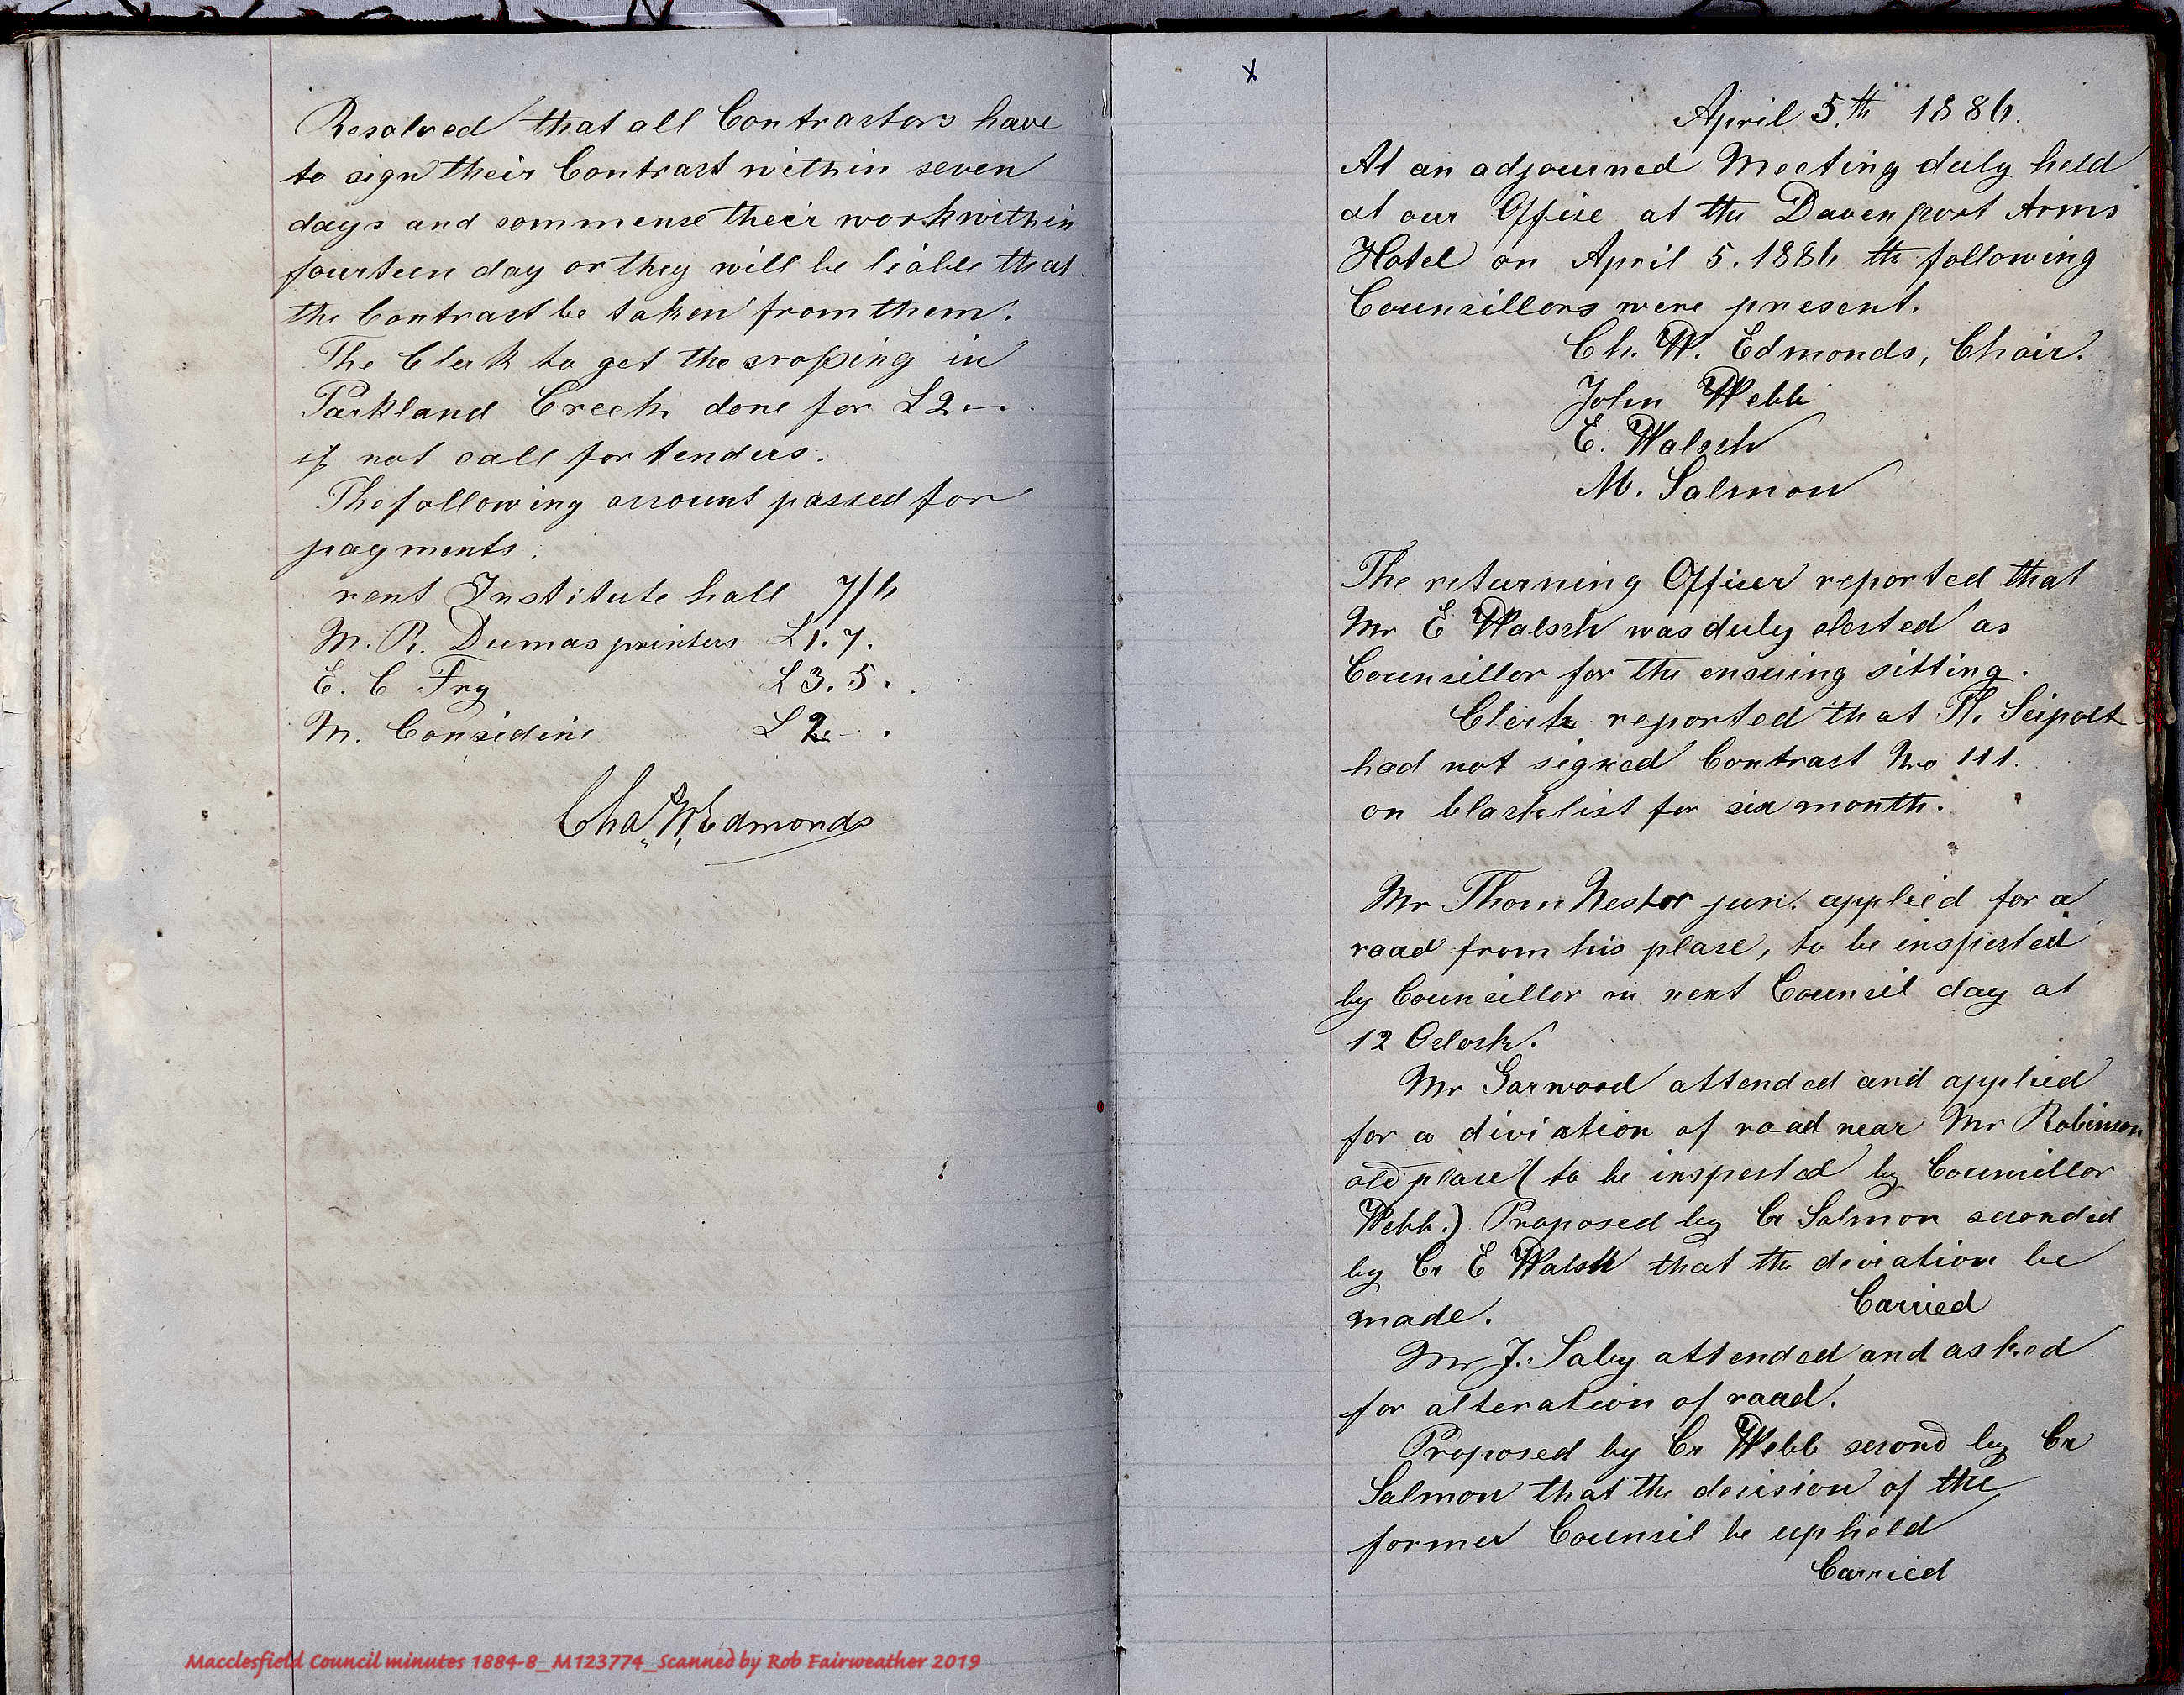 Resolved that all Contractors have
to sign their Contract within seven
days and commence their work within
fourteen day or they will be liable that
the Contract be taken from them.
The Clerk to get the crossing in
Parkland Creek done for £2–.
if not call for tenders.
The following account passed for
payments.
rent Institute hall 7/6
M. R. Dumas printers £1.7.
E. C Fry £3.5.
M. Considine £2. – .
Chas. W. Edmonds
x
April 5.th 1886.
At an adjourned Meeting duly held
at our Office at the Davenport Arms
Hotel on April 5. 1886 the following
Councillors were present.
Ch. W. Edmonds, Chair.
John Webb
E. Walsch
M. Salmon
The returning Officer reported that
Mr E Walsch was duly elected as
Councillor for the ensuing sitting.
Clerk reported that Th. Seipolt
had not signed Contract No 111.
on blacklist for six month.
Mr Thom Nestor jun. applied for a
road from his place, to be inspected
by Councillor on next Council day at
12 Oclock.
Mr Garwood attended and applied
for a diviation of road near Mr Robinson
old place (to be inspected by Councillor
Webb.) Proposed by Cr Salmon seconded
by Cr E Walsh that the deviation be
made. Carried
Mr J. Saby attended and asked
for alteration of road.
Proposed by Cr Webb second by Cr
Salmon that the decision of the
former Council be upheld
Carried
Macclesfield Council minutes 1884-8_M123774_Scanned by Rob Fairweather 2019